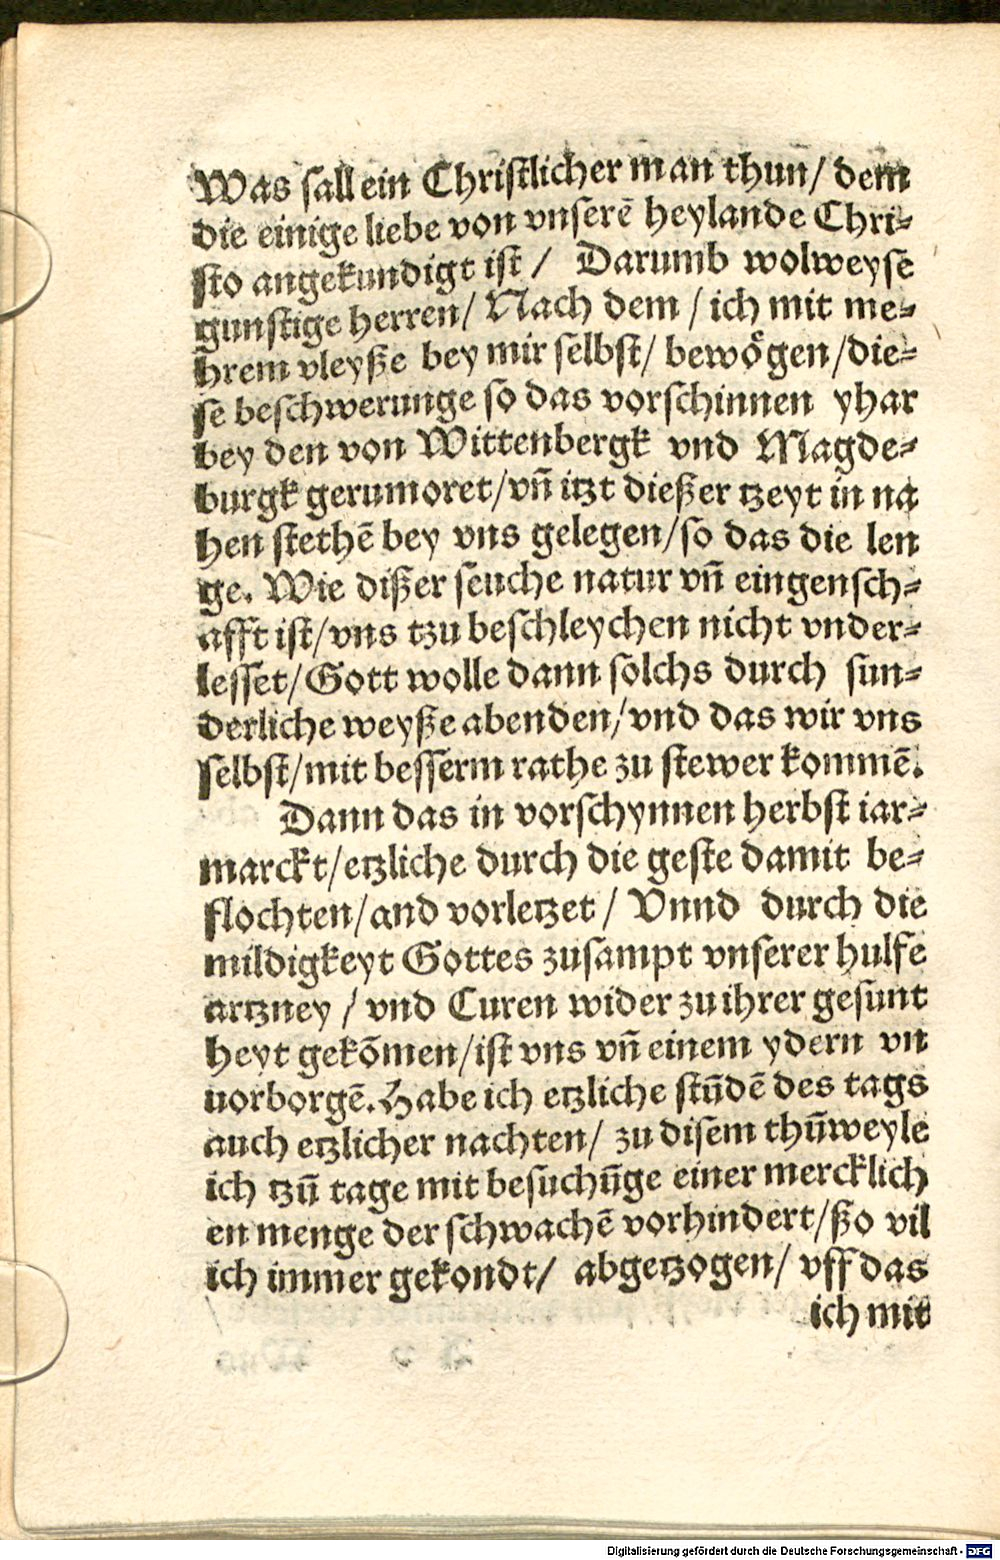 Was sall ein Christlicher man thun/ dem
die einige liebe von vnserē heylande Chri-
sto angekundigt ist / Darumb wolweyse
gunstige herren/ Nach dem / ich mit me-
hrem vleyße bey mir selbst/ bewögen/die-
se beschwerunge so das vorschinnen yhar
bey den von Wittenbergk vnd Magde-
burgk gerumoret/vn̄ itzt dießer tzeyt in na
hen stethē bey vns gelegen/so das die len
ge. Wie dißer seuche natur vn̄ eingensch-
afft ist/vns tzu beschleychen nicht vnder-
lesset/Gott wolle dann solchs durch sun-
derliche weyße abenden/vnd das wir vns
selbst/mit besserm rathe zu stewer kommē.
Dann das in vorschynnen herbst iar-
marckt/etzliche durch die geste damit be-
flochten/and vorletzet / Vnnd durch die
mildigkeyt Gottes zusampt vnserer hulfe
artzney / vnd Curen wider zu ihrer gesunt
heyt gekōmen/ist vns vn̄ einem ydern vn
uorborgē. Habe ich etzliche stūdē des tags
auch etzlicher nachten/ zu disem thūweyle
ich tzū tage mit besuchūge einer mercklich
en menge der schwachē vorhindert/ßo vil
ich immer gekondt/ abgetzogen/ vff das
ich mit
Digitalisierung gefördert durch die Deutsche Forschungsgemeinschaft - DFG